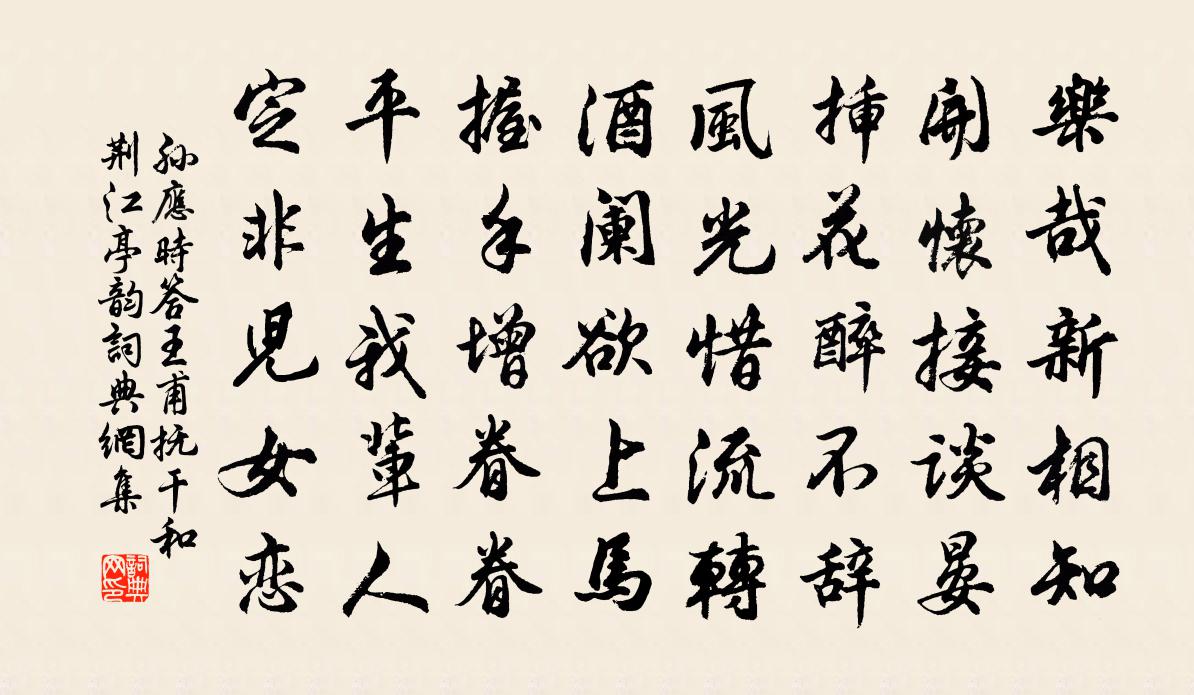 樂哉新相知
開懷接談晏
挿花醉不辞
風光惜流轉
酒闌欲上馬
握手增眷眷
平生我輩人
定非兒女恋
孙應時答王甫抚干和
荆江亭韵詞典網集
詞典网印